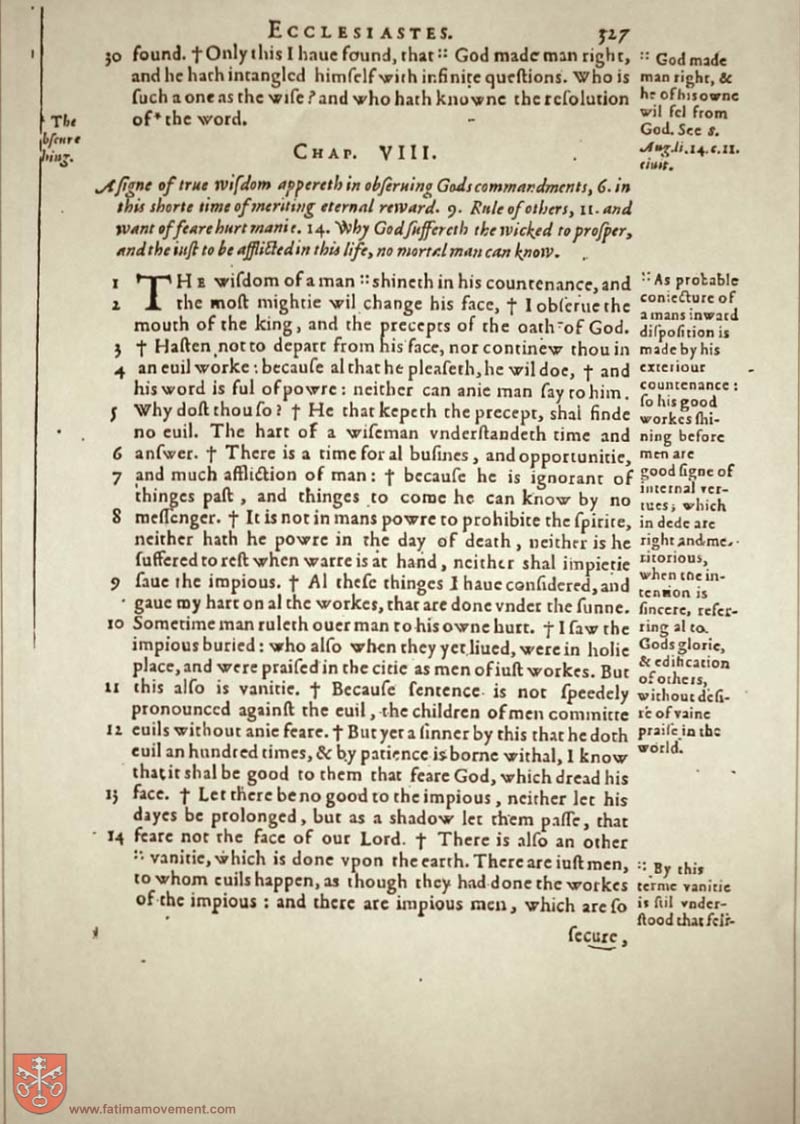 ECCLESIASTES. 527
30 found. † Only this I haue found, that :: God made man right,
and he hath intangled himſelf with infinite queſtions. Who is
ſuch a one as the wiſe? and who hath knowne the reſolution
of * the word.
:: God made
man right, &
he of his owne
wil fel from
God. See s.
Aug. li. 14. c. 11.
ciuit.
* The
obſcure
thing.
CHAP. VIII.
A ſigne of true wiſdom appereth in obſeruing Gods commandments, 6. in
this shorte time of meriting eternal reward. 9. Rule of others, 11. and
want of feare hurt manie. 14. Why God ſuffereth the wicked to proſper,
and the iuſt to be afflicted in this life, no mortal man can know.
1 THE wiſdom of a man :: shineth in his countenance, and
2 the moſt mightie wil change his face, † I obſerue the
mouth of the king, and the precepts of the oath of God.
3 † Haſten not to depart from his face, nor continew thou in
4 an euil worke: becauſe al that he pleaſeth, he wil doe, † and
his word is ful of powre: neither can anie man ſay to him.
5 Why doſt thou ſo? † He that kepeth the precept, shal finde
no euil. The hart of a wiſeman vnderſtandeth time and
6 anſwer. † There is a time for al buſines, and opportunitie,
7 and much affliction of man: † becauſe he is ignorant of
thinges paſt, and thinges to come he can know by no
8 meſſenger. † It is not in mans powre to prohibite the ſpirite,
neither hath he powre in the day of death, neither is he
ſuffered to reſt when warre is at hand, neither shal impietie
9 ſaue the impious. † Al theſe thinges I haue conſidered, and
gaue my hart on al the workes, that are done vnder the ſunne.
10 Sometime man ruleth ouer man to his owne hurt. † I ſaw the
impious buried: who alſo when they yet liued, were in holie
place, and were praiſed in the citie as men of iuſt workes. But
11 this alſo is vanitie. † Becauſe ſentence is not ſpeedely
pronounced againſt the euil, the children of men committe
12 euils without anie feare. † But yet a ſinner by this that he doth
euil an hundred times, & by patience is borne withal, I know
that it shal be good to them that feare God, which dread his
13 face. † Let there be no good to the impious, neither let his
dayes be prolonged, but as a shadow let them paſſe, that
14 feare not the face of our Lord. † There is alſo an other
:: vanitie, which is done vpon the earth. There are iuſt men,
to whom euils happen, as though they had done the workes
of the impious: and there are impious men, which are ſo
ſecure,
:: As probable
coniecture of
a mans inward
diſpoſition is
made by his
exteriour
countenance:
ſo his good
workes ſhi-
ning before
men are
good ſigne of
internal ver-
tues; which
in dede are
right and me-
ritorious,
when the in-
tention is
ſincere, refer-
ring al to
Gods glorie,
& edification
of others,
without deſi-
re of vaine
praiſe in the
world.
:: By this
terme vanitie
is ſtil vnder-
ſtood that feli-
www.fatimamovement.com